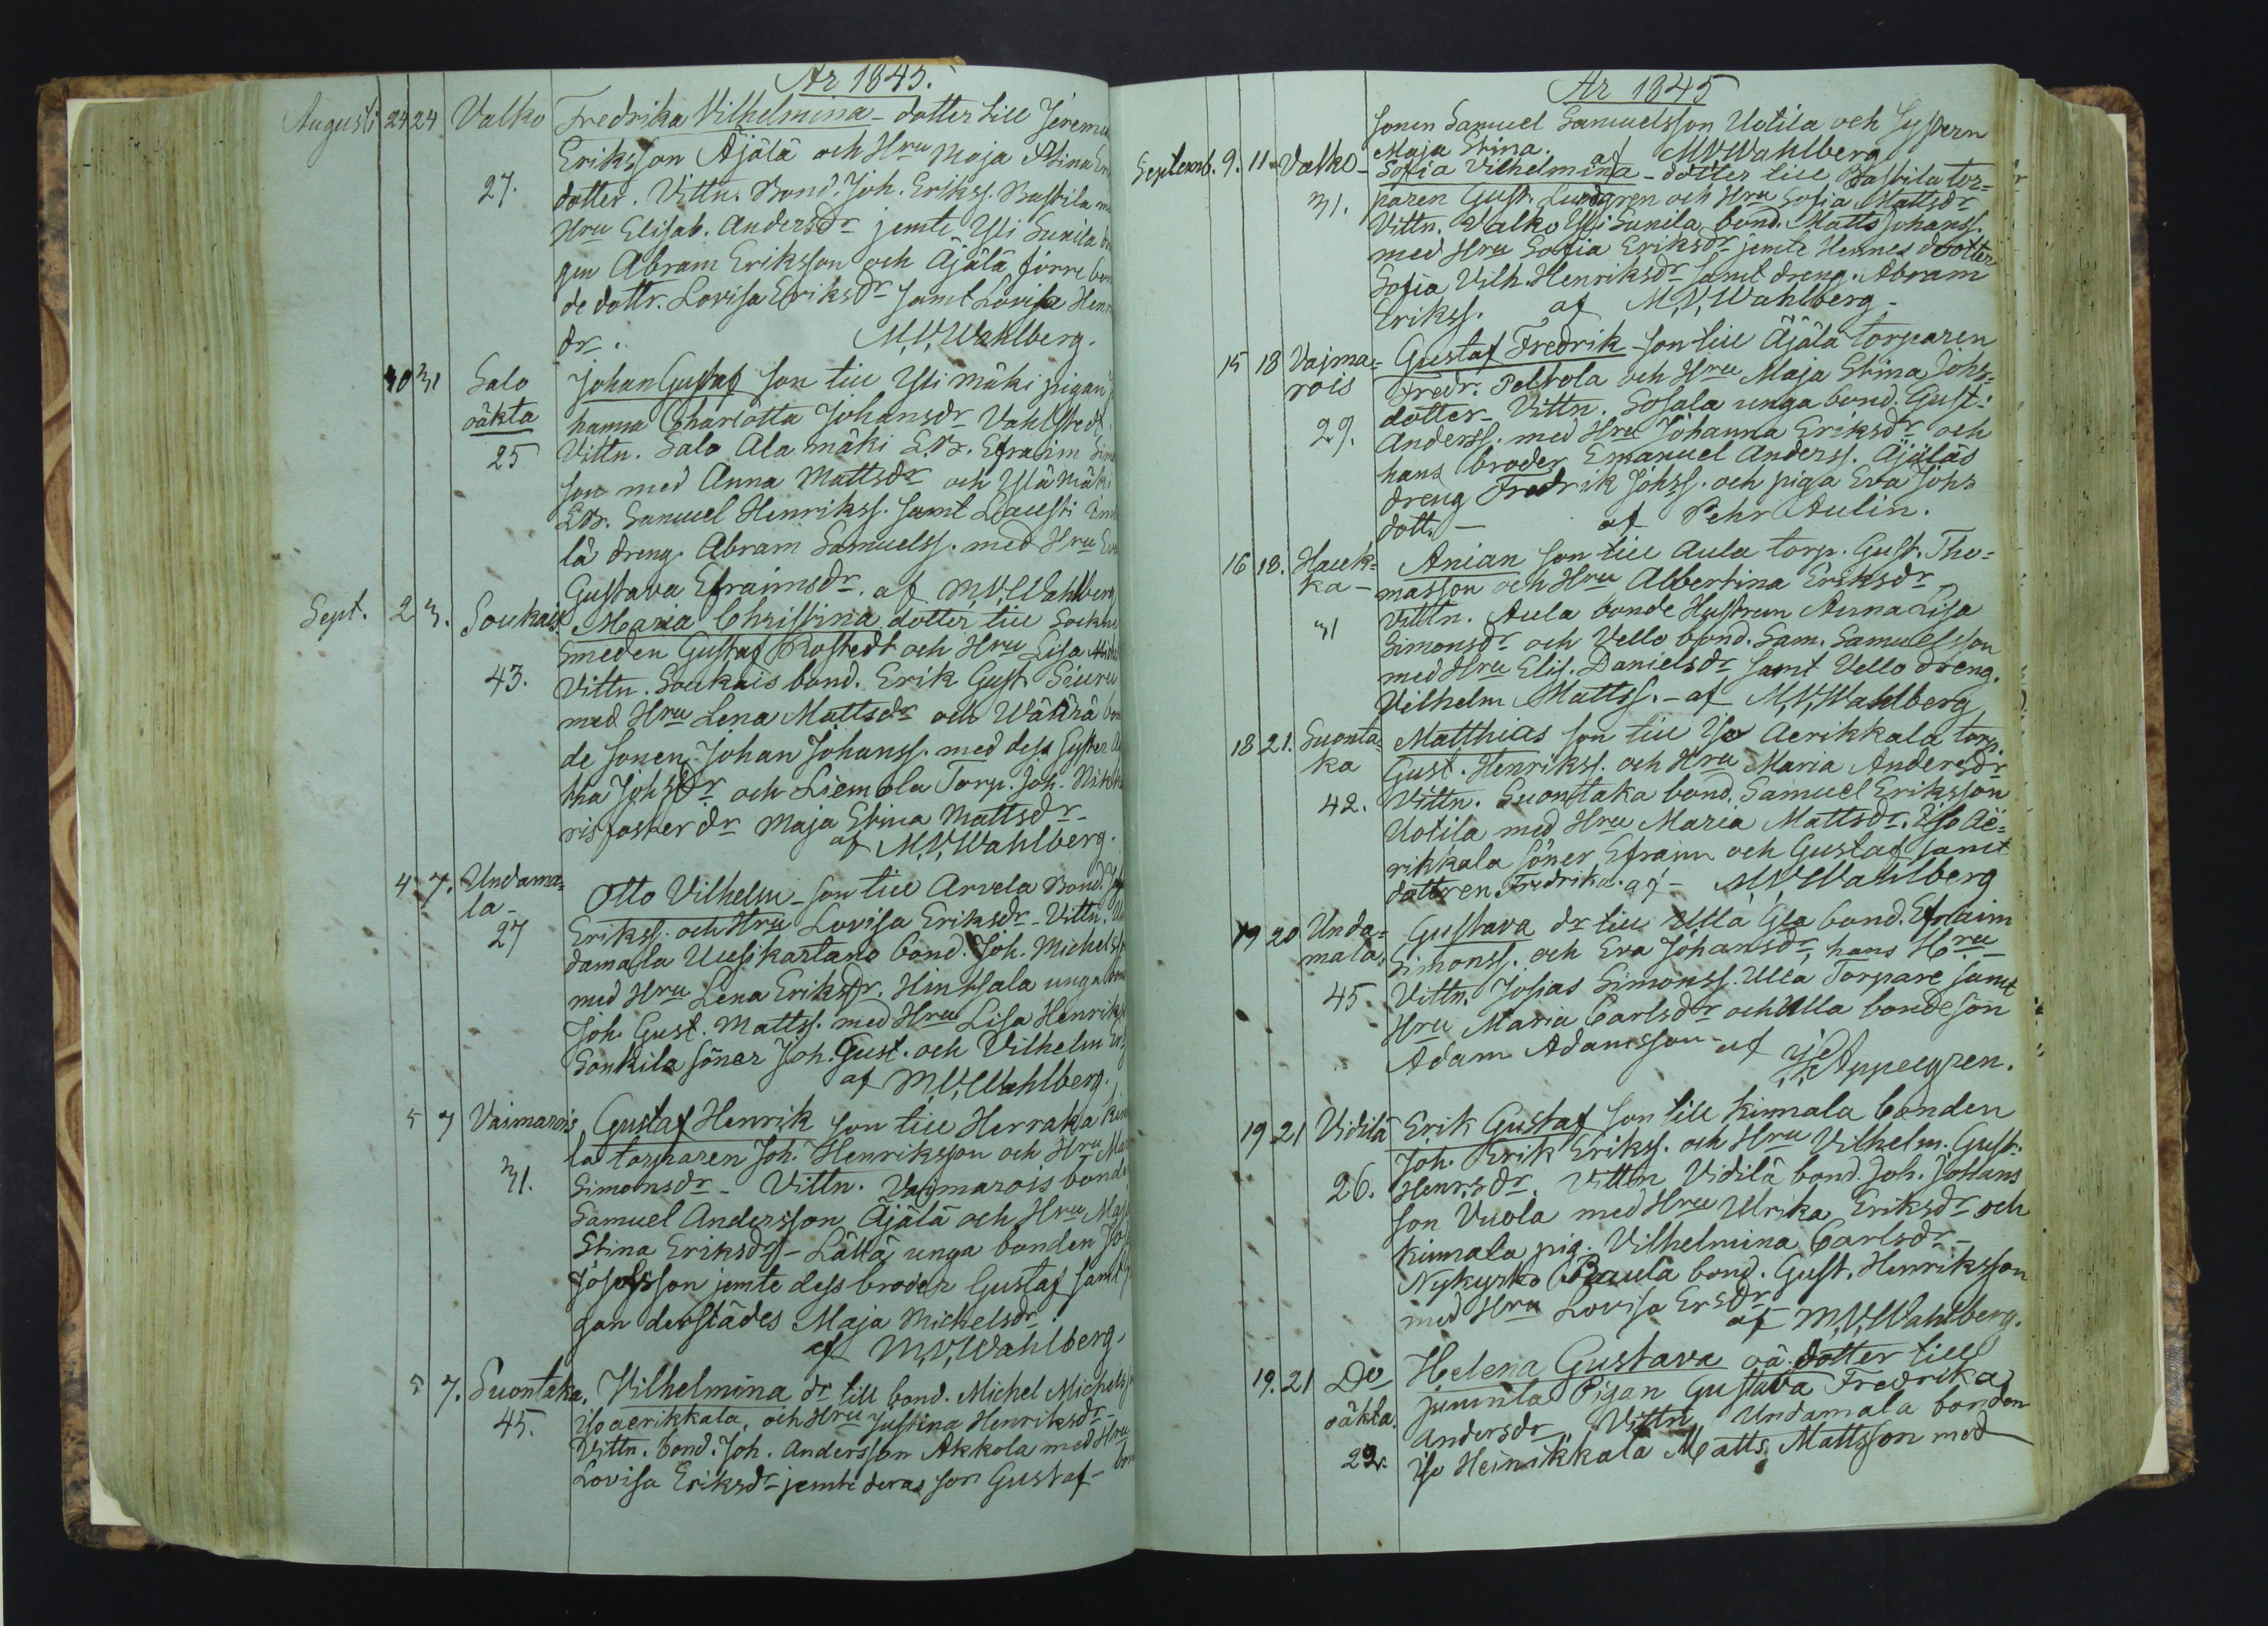 År 1845.
Augusti 24 24 Valko Fredrika Vilhelmina - dotter till Jeremi
Eriksson Äjälä och Hru Maja Stina Er
27. dotter. Vittn. Bond. Joh. Erikss. Bastila m
Hru Elisab. Andersdr jemte Yli Sunila
gen Abram Eriksson och Äjälä förre bon
de dottr. Lovisa Eriksdr samt Lovisa Hen
dr. M.V. Wahlberg.
30 31 Salo Johan Gustaf son till Yli mäki pigan J
oäkta hanna Charlotta Johansdr Vahlstedt.
25 Vittn. Salo Ala mäki Efraim Sim
son med Anna Mattsdr och Ylä mäki
Samuel Henrikss. samt Lausti
lä dreng. Abram Samuelss. med Hru Ev
Gustava Efraimsdr. af M.V. Wahlberg
Sept. 2 3. Soukais Maria Christina dotter till Sockne
smeden Gustaf Rostedt och Hru Lisa
43. Vittn. Soukais bond. Erik Gust. Siuru
med Hru Lena Mattsdr och Wäärä bon
de sonen Johan Johanss. med dess syster
tha Johsdr och Liemola Torp. Joh.
ris fosterdr Maja Stina Mattsdr
af M.V. Wahlberg.
4 7. Undama=
la - Otto Vilhelm - son till Arvela Bond.
27 Erikss. och Hru Lovisa Eriksdr - Vittn. Un
damala Uusikartano bond. Joh. Michelss
med Hru Lena Eriksdr. Hintsala unga bond
Joh. Gust. Mattss. med Hru Lisa Henriks
Sonkila söner Joh. Gust. och Vilhelm Er
af M.V. Wahlberg.
5 7 Vaimarois, Gustaf Henrik son till Herraka kin
la torparen Joh. Henriksson och Hru Ma
31. Simonsdr - Vittn. Vajmarois bonde
Samuel Andersson Äjälä och Hru Maj
Stina Eriksdr - Lättä unga bonden Jo
Josefsson jemte dess broder Gustaf samt
gan derstädes Maja Michelsdr.
af M.V. Wahlberg,
5 7. Suontaka, Vilhelmina dr till bond. Michel Michelss
45. Iso aerikkala, och Hru Justina Henriksdr
Vittn. bond. Joh. Andersson Akkola med Hru
Lovisa Eriksdr - jemte deras son Gustaf - bon
År 1845
sonen Samuel Samuelsson Uotila och systern
Maja Stina. af M.V. Wahlberg
Septemb. 9. 11 Valko - Sofia Vilhelmina - dotter till Bastila tor=
31. paren Gust. Lundgren och Hru Sofia Mattsdr
Vittn. Valko Yli Sunila bond. Matts Johanss.
med Hru Sofia Eriksdr jemte Hennes dotter
Sofia Vilh. Henriksdr samt dreng. Abram
Erikss. af M.V. Wahlberg -
15 18 Vajma= Gustaf Fredrik - son till Äjälä torparen
rois Fredr. Peltola och Hru Maja Stina Johs=
dotter - Vittn. Sosala unga bond. Gust.
29. Anderss. med Hru Johanna Eriksdr och
hans broder Emanuel Anderss. Äjäläs
dreng Fredrik Johss. och piga Eva Johs
dott. - af Pehr Aulin.
16 18. Hauk= Anian son till Aula torp. Gust. Tho=
ka - masson och Hru Albertina Eriksdr
31 Vittn. Aula bonde Hustrun Anna Lisa
Simonsdr och Vello bond. Sam. Samuelsson
med Hru Elis. Danielsdr samt Vello dreng.
Vilhelm Mattss. - af M.V. Wahlberg
18 21. Suonta= Matthias son till Iso Aerikkala torp.
ka Gust. Henrikss. och Hru Maria Andersdr
42. Vittn. Suontaka bond. Samuel Eriksson
Uotila med Hru Maria Mattsdr. Iso Ae=
rikkala söner Efraim och Gustaf samt
dottren Fredrika. af - M.V. Wahlberg
19 20 Unda= Gustava dr till Ullä bond. Efraim
mala. Simonss. och Eva Johansdr, hans Hru -
45 Vittn. Josias Simonss. Ulla Torpare samt
Hru Maria Carlsdr och Ulla bondeson
Adam Adamsson - af Appelgren.
19 21 Vidilä Erik Gustaf son till Kinnala bonden
Joh. Erik Erikss. och Hru Vilhelm. Gust.
26. Henrsdr. Vittn Vidilä bond. Joh. Johans
son Vuola med Hru Ulrika Eriksdr och
Kinnala pig. Vilhelmina Carlsdr -
Nykyrko Paula bond. Gust. Henriksson
med Hru Lovisa Ersdr
af M.V. Wahlberg.
19. 21 Do Helena Gustava oä. dotter till
oäkta Jumila Pigan Gustava Fredrika
Andersdr Vittn. Undamala bonden
29. Iso Heinikkala Matts Mattsson med